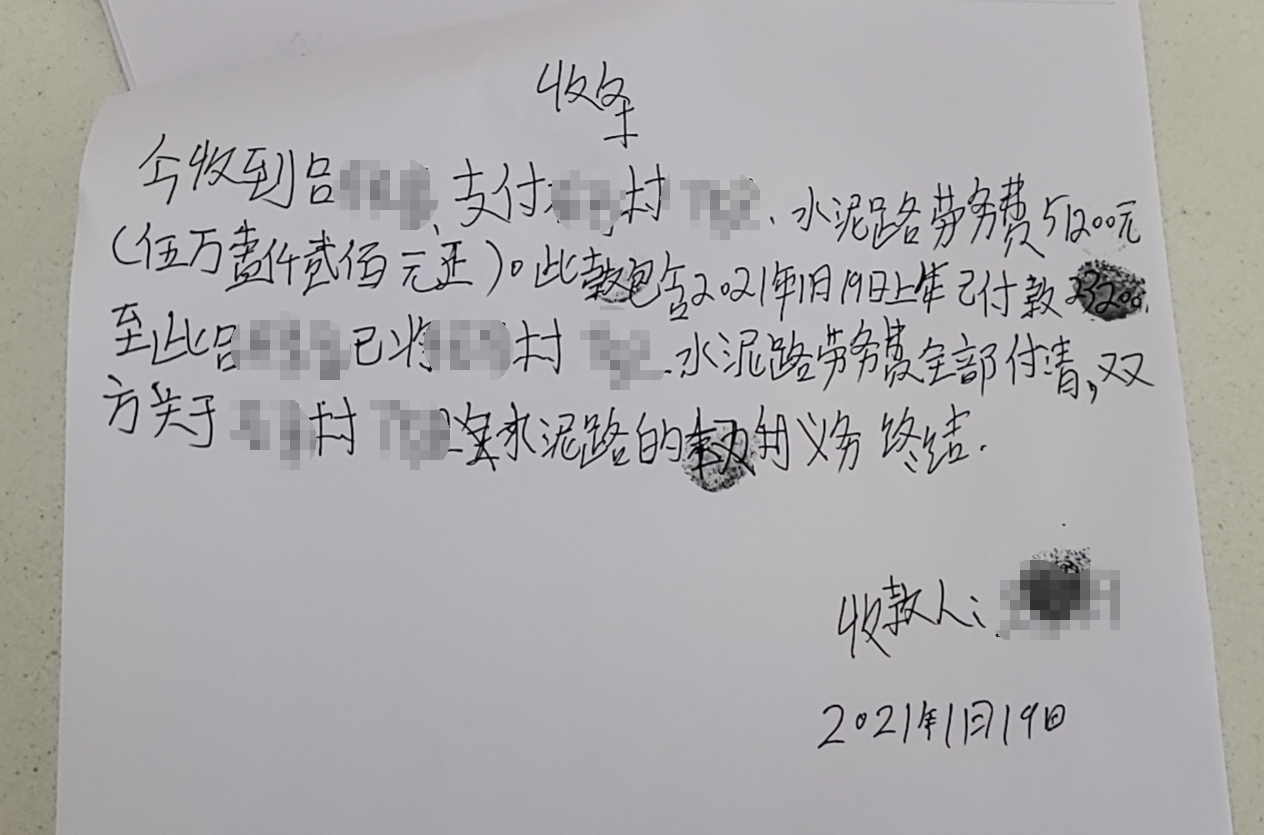 收条
今收到吕 、支付 村 、水泥路劳务费51200元
(伍万壹仟贰佰元正)。此款包含2021年1月19日上午已付款23200
至此吕 已将 村 水泥路劳务费全部付清,双
方关于 村 水泥路的权利义务终结.
收款人:
2021年1月19日